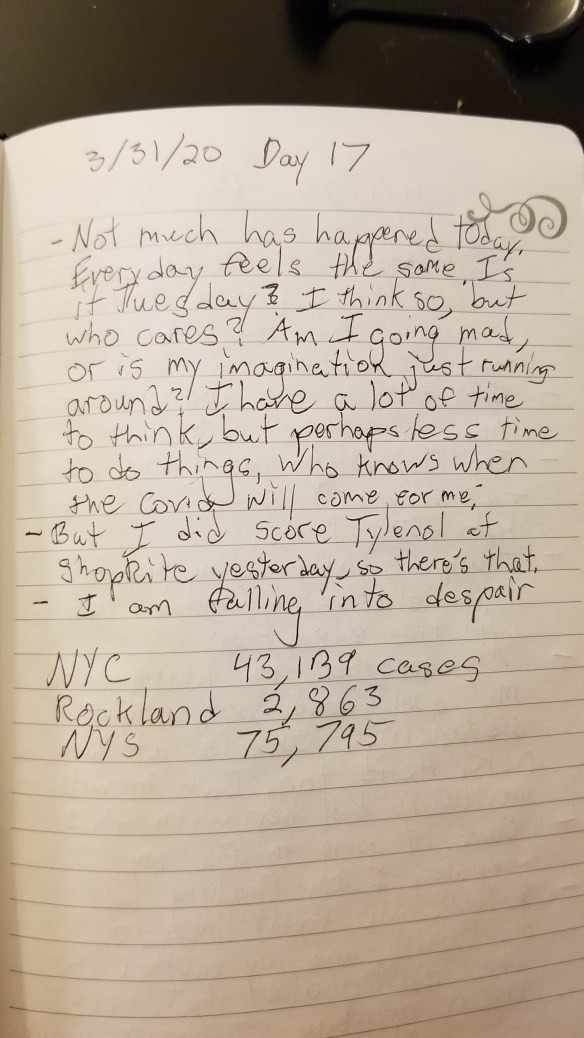 3/31/20 Day 17
- Not much has happened today.
Everyday feels the same. Is
it Tuesday? I think so, but
who cares? Am I going mad,
or is my imagination just running
around? I have a lot of time
to think, but perhaps less time
to do things, Who knows when
the Covid will come for me,
- But I did score Tylenol at
ShopRite yesterday, so there's that.
- I am falling into despair
NYC 43,139 cases
Rockland 2,863
NYS 75,795